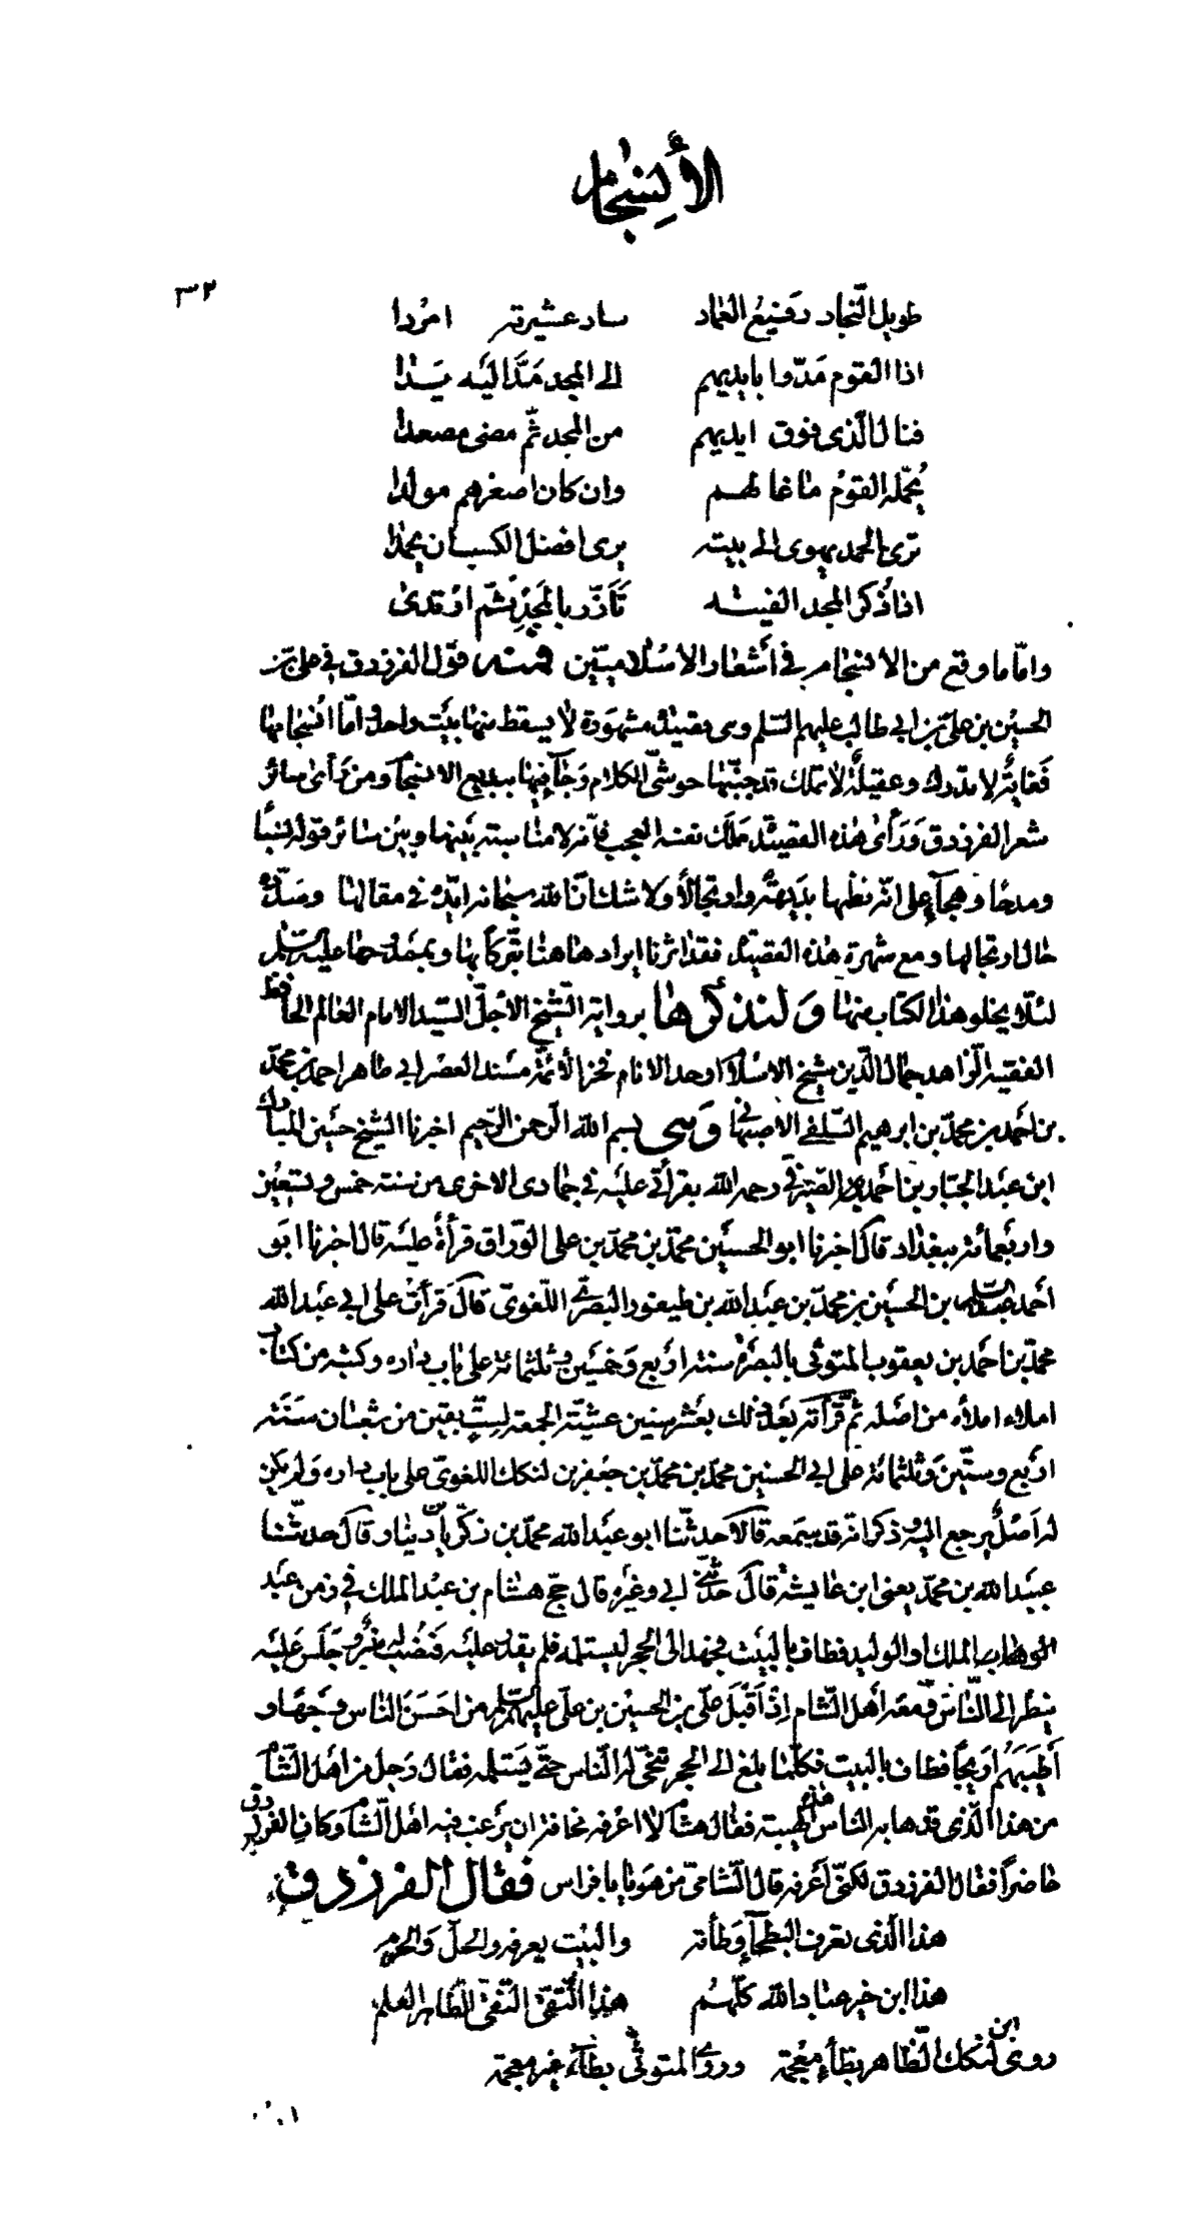 الأنسجام
٣٢
طويل النّجاد رفيع العماد ساد عشيرته امردا
اذا القوم مدّوا بايديهم الى المجد مدّ اليه يدا
فنال الّذى فوق ايديهم من المجد ثمّ مضى مصعدا
يحمّله القوم ما غالهم وان كان اصغرهم مولدا
ترى الحمد يهوى الى بيته يرى افضل الكسب ان يحمدا
اذا ذكر المجد الفيته تأزّر بالمجد ثمّ ارتدى
وامّا ما وقع من الانسجام فى أشعار الاسلاميّين فمنه قول الفرزدق فى على بن
الحسين بن علىّ بن ابى طالب عليهم السّلم وهى قصيدة مشهورة لا يسقط منها بيت واحد وامّا انسجامها
فغاية لا تدرك وعقيلة لا تملك قد جنّبها حوشىّ الكلام وجآء فيها ببديع الانسجام ومن رأى سائر
شعر الفرزدق ورأى هذه القصيدة ملك نفسه العجب فانّه لا مناسبة بينها وبين سائر قوله نسيبا
ومدحا وهجآء على انّه نظمها بديهة وارتجالا ولا شك انّ الله سبحانه ايّده فى مقالها وسدّده
حال ارتجالها ومع شهرة هذه القصيدة فقد اثرنا ايرادها هنا تبرّكا بها وبممدوحها عليه السّلم
لئلّا يخلو هذا الكتاب منها ولنذكرها برواية الشّيخ الأجلّ السّيد الامام العالم الحافظ
الفقيه الزّاهد جمال الدّين شيخ الاسلام اوحد الانام فخر الأئمّة مسند العصر ابى طاهر احمد بن محمّد
بن احمد بن محمّد بن ابرهيم السّلفى الاصبهانى وهى بسم الله الرّحمن الرّحيم اخبرنا الشّيخ حسين المبارك
ابن عبد الجبّار بن احمد الصيرفى رحمه الله بقرأتى عليه فى جمادى الاخرى من سنة خمس وتسعين
واربعمائة ببغداد قال اخبرنا ابو الحسين محمّد بن محمّد بن على الورّاق قرأة عليه قال اخبرنا ابو
احمد عبد السّلم بن الحسين بن محمّد بن عبد الله بن طيفور البصرىّ اللّغوىّ قال قرأت على ابى عبد الله
محمّد بن احمد بن يعقوب المتوثى بالبصرة سنة اربع وخمسين وثلثمائة على باب داره وكتبه من كتاب
املاء املأه من اصله ثمّ قرأته بعد ذلك بعشر سنين عشيّة الجمعة لستّ بقين من شعبان سنة
اربع وستّين وثلثمائة على ابى الحسين محمّد بن محمّد بن جعفر بن لنكك اللغوىّ على باب داره ولم يكن
له اصل يرجع اليه وذكر انّه قد سمعه قالا حدثنا ابو عبد الله محمّد بن زكريّا بن دينار قال حدثنا
عبيد الله بن محمّد يعنى ابن عايشة قال حدثنى ابى وغيره قال حجّ هشام بن عبد الملك فى زمن عبد
الملك او الوليد فطاف بالبيت فجهد الى الحجر ليستلمه فلم يقدر عليه فنصب له منبر وجلس عليه
ينظر الى النّاس ومعه أهل الشّام إذ أقبل علىّ بن الحسين بن علىّ عليهم السّلم من احسن الناس وجها و
أطيبهم اريجا فطاف بالبيت فكلّما بلغ الى الحجر تنحّى له النّاس حتّى يستلمه فقال رجل من اهل الشّام
من هذا الّذى قد هابه الناس هذه الهيبة فقال هشام لا اعرفه مخافة ان يرغب فيه اهل الشّام وكان الفرزدق
حاضرا فقال الفرزدق لكنّى أعرفه قال الشّامىّ من هو يا با فراس فقال الفرزدق
هذا الّذى تعرف البطحآء وطأته والبيت يعرفه والحلّ والحرم
هذا ابن خير عباد الله كلّهم هذا التّقىّ النّقىّ الطّاهر العلم
روى ابن لنكك الظّاهر بظآء معجمة وروى المتوثى بطآء غير معجمة